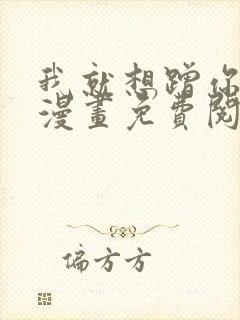 我就想蹭你
漫畫免費閱
偏方方